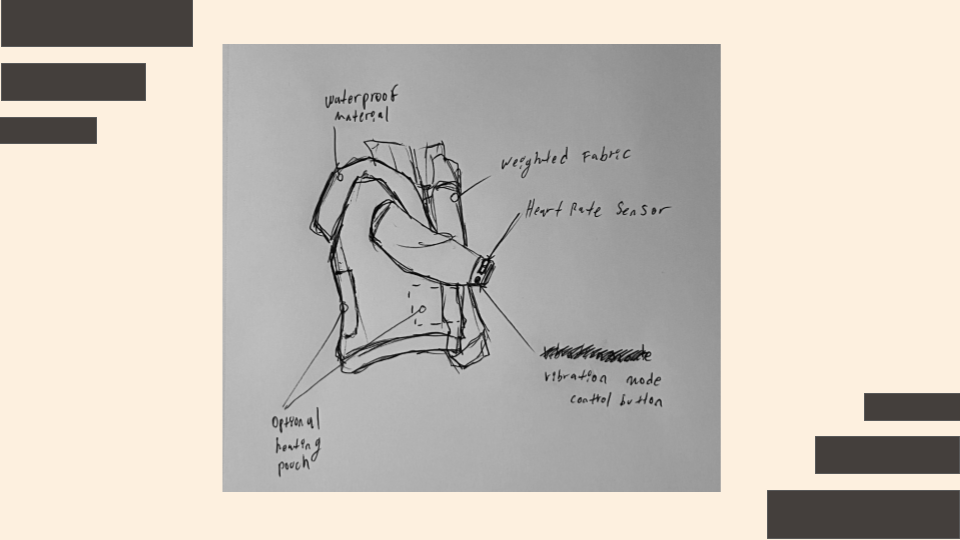 waterproof
material
weighted Fabric
Heart Rate Sensor
vibration mode
control button
Optional
heating
pouch